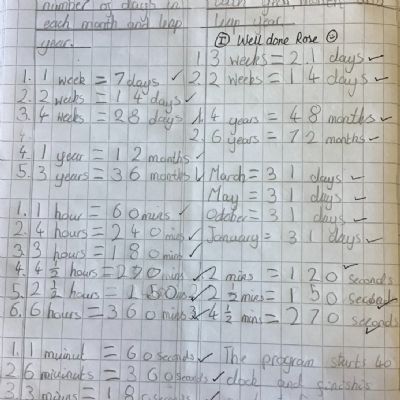 number of days in
each month and leap
year.
1. 1 week = 7 days
2. 2 weeks = 14 days
3. 4 weeks = 28 days
4. 1 year = 12 months
5. 3 years = 36 months
1. 1 hour = 60 mins
2. 4 hours = 240 mins
3. 3 hours = 180 mins
4. 4 1/2 hours = 270 mins
5. 2 1/2 hours = 150 mins
6. 6 hours = 360 mins
1. 1 muinut = 60 seconds
2 6 minunuts = 360 seconds
3. 3 mins = 18
leap year.
I Well done Rose
1 3 weeks = 21 days
2 2 weeks = 14 days
1. 4 years = 48 months
2. 6 years = 72 months
March = 31 days
May = 31 days
October = 31 days
January = 31 days
1 2 mins = 120 seconds
2 2 1/2 mins = 150 second
3 4 1/2 mins = 270 seconds
The program starts 40
clock and